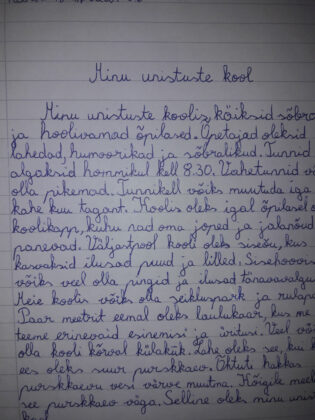 Minu unistuste kool
Minu unistuste koolis käiksid sõbra
ja hoolivamad õpilased. Õpetajad oleksid
lahedad, humoorikad ja sõbralikud. Tunnid
algaksid hommikul kell 8.30. Vahetunnid v
olla pikemad. Tunnikell võiks muutuda iga
kahe kuu tagant. Koolis oleks igal õpilasel o
koolikapp, kuhu nad oma joped ja jalanõud
panevad. Väljaspool kooli oleks siseõu, kus
kasvaksid ilusad puud ja lilled. Sisehoovis
võiks veel olla pingid ja ilusad tänavavalgu
Meie koolis võiks olla seikluspark ja rulapa
Paar meetrit eemal oleks laulukaar, kus me
teeme erinevaid esinemisi ja üritusi. Veel võ
olla kooli kõrval külakiik. Lahe oleks see, kui k
ees oleks suur purskkaev. Õhtuti hakkas
purskkaevu vesi värve muutma. Kõigile meel
see purskkaev väga. Selline oleks minu unis